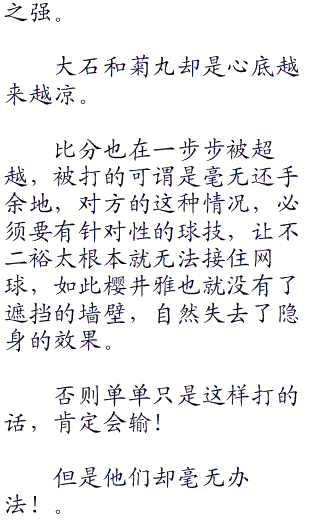 之强。
大石和菊丸却是心底越
来越凉。
比分也在一步步被超
越，被打的可谓是毫无还手
余地，对方的这种情况，必
须要有针对性的球技，让不
二裕太根本就无法接住网
球，如此樱井雅也就没有了
遮挡的墙壁，自然失去了隐
身的效果。
否则单单只是这样打的
话，肯定会输！
但是他们却毫无办
法！。